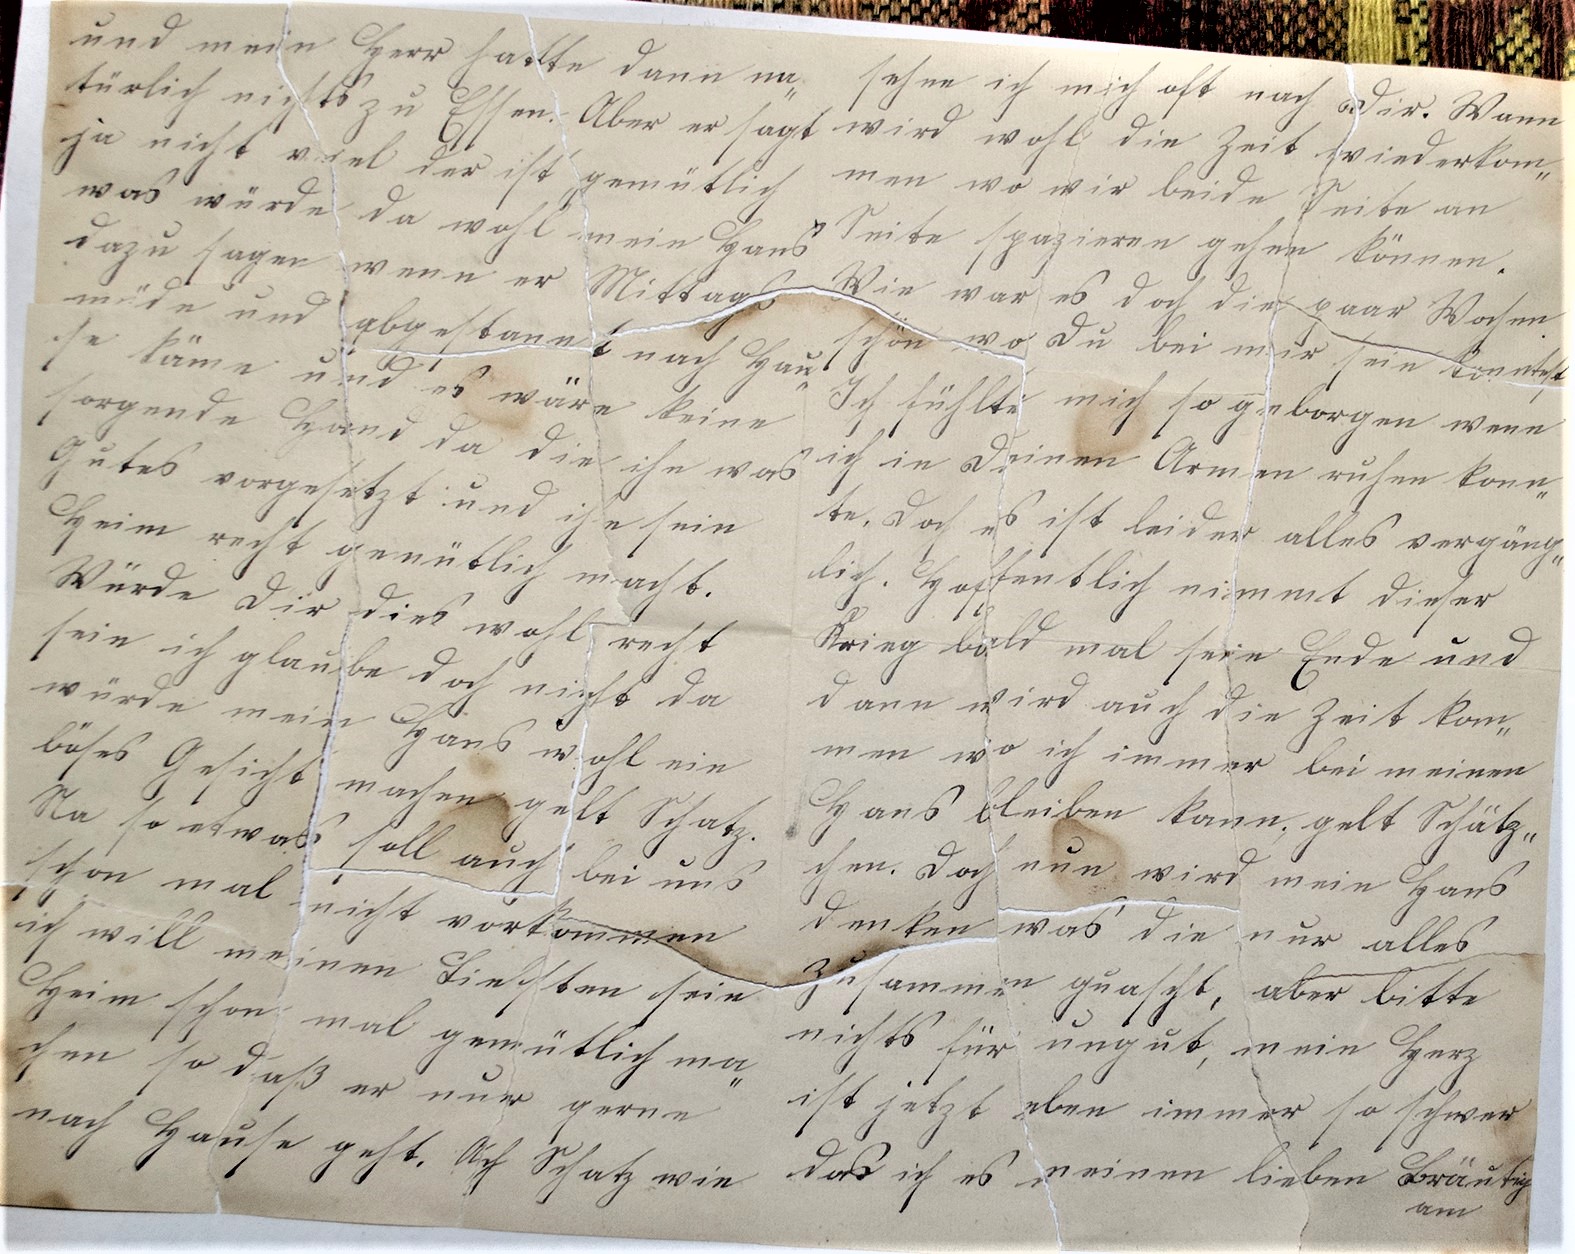 und mein Herr hatte dann na„
türlich nichts zu Essen. Aber er sagt
ja nicht viel der ist gemütlich
was würde da wohl mein Hans
dazu sagen wenn er Mittags
müde und abgespannt nach Hau„
se käme und es wäre keine
sorgende Hand da die ihn was
Gutes vorgesetzt und ihn sein
Heim recht gemütlich macht.
Würde Dir dies wohl recht
sein ich glaube doch nicht da
würde mein Hans wohl ein
böses Gesicht machen gelt Schatz.
Na so etwas soll auch bei uns
schon mal nicht vorkommen
ich will meinen Liebsten sein
Heim schon mal gemütlich ma„
chen so daß er nur gerne
nach Hause geht. Ach Schatz wie
sehne ich mich oft nach Dir. Wann
wird wohl die Zeit wiederkom„
men wo wir beide Seite an
Seite spazieren gehen können.
Wie war es doch die paar Wochen
schön wo Du bei mir sein konntest
Ich fühlte mich so geborgen wenn
ich in Deinen Armen ruhen konn„
te. Doch es ist leider alles vergäng„
lich. Hoffentlich nimmt dieser
Krieg bald mal sein Ende und
dann wird auch die Zeit kom„
men wo ich immer bei meinen
Hans bleiben kann, gelt Schätz„
chen. Doch nun wird mein Hans
denken was die nur alles
zusammen quascht, aber bitte
nichts für ungut, mein Herz
ist jetzt eben immer so schwer
das ich es meinen lieben Bräutig
am